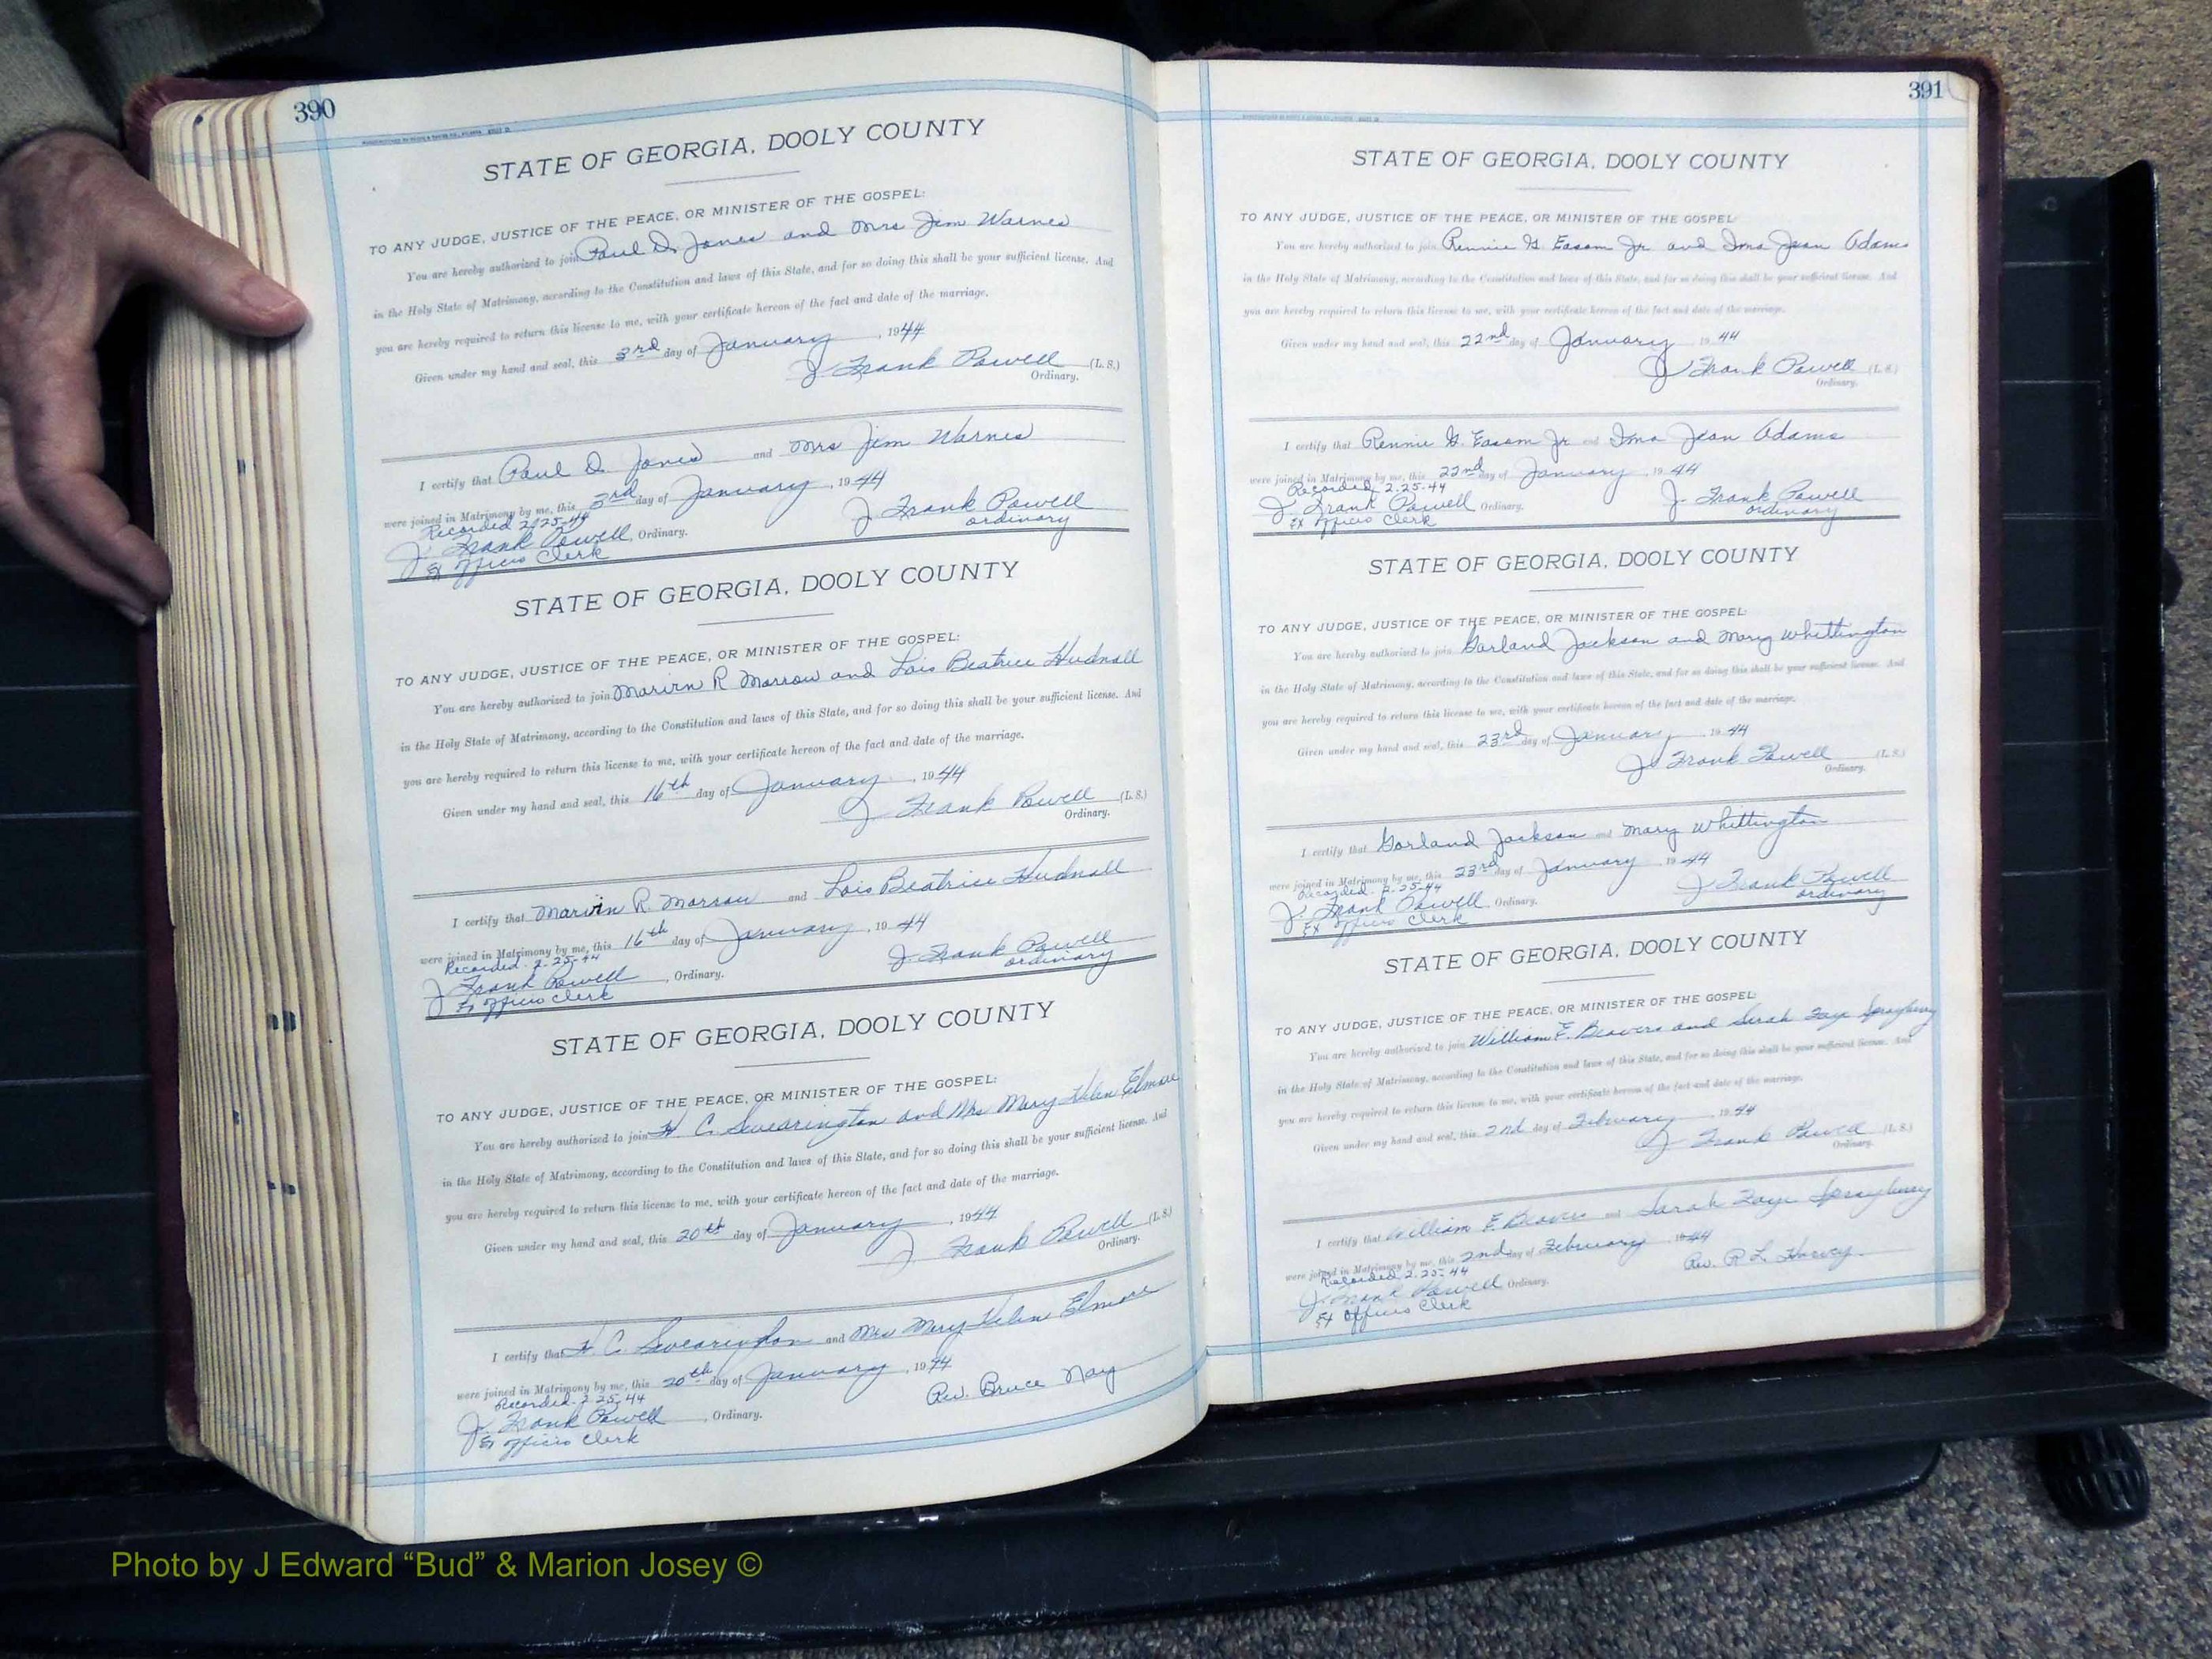 390
STATE OF GEORGIA, DOOLY COUNTY
TO ANY JUDGE, JUSTICE OF THE PEACE, OR MINISTER OF THE GOSPEL:
You are hereby authorized to join Paul D. Jones and Mrs Jim Warnes
in the Holy State of Matrimony, according to the Constitution and laws of this State, and for so doing this shall be your sufficient license. And
you are hereby required to return this license to me, with your certificate hereon of the fact and date of the marriage.
Given under my hand and seal, this 3rd day of January, 1944
J. Frank Powell (L. S.)
Ordinary.
I certify that Paul D. Jones and Mrs Jim Warnes
were joined in Matrimony by me, this 3rd day of January, 1944
Recorded 2-25-44
J. Frank Powell
ordinary
J. Frank Powell, Ordinary.
Ex Officio Clerk
STATE OF GEORGIA, DOOLY COUNTY
TO ANY JUDGE, JUSTICE OF THE PEACE, OR MINISTER OF THE GOSPEL:
You are hereby authorized to join Marvin R Morrow and Lois Beatrice Hudnall
in the Holy State of Matrimony, according to the Constitution and laws of this State, and for so doing this shall be your sufficient license. And
you are hereby required to return this license to me, with your certificate hereon of the fact and date of the marriage.
Given under my hand and seal, this 16th day of January, 1944
J Frank Powell (L. S.)
Ordinary.
I certify that Marvin R. Morrow and Lois Beatrice Hudnall
were joined in Matrimony by me, this 16th day of January, 1944
Recorded 2-25-44
J. Frank Powell
ordinary
J Frank Powell, Ordinary.
Ex Officio Clerk
STATE OF GEORGIA, DOOLY COUNTY
TO ANY JUDGE, JUSTICE OF THE PEACE, OR MINISTER OF THE GOSPEL:
You are hereby authorized to join H C. Swearington and Mrs Mary Helen Elmore
in the Holy State of Matrimony, according to the Constitution and laws of this State, and for so doing this shall be your sufficient license. And
you are hereby required to return this license to me, with your certificate hereon of the fact and date of the marriage.
Given under my hand and seal, this 20th day of January, 1944
J. Frank Powell (L. S.)
Ordinary.
I certify that H. C. Swearington and Mrs Mary Helen Elmore
were joined in Matrimony by me, this 20th day of January, 1944
Recorded 2-25-44
Rev. Bruce Nay
J. Frank Powell, Ordinary.
Ex officio Clerk
391
STATE OF GEORGIA, DOOLY COUNTY
TO ANY JUDGE, JUSTICE OF THE PEACE, OR MINISTER OF THE GOSPEL:
You are hereby authorized to join Rennie G. Easom Jr. and Ima Jean Adams
in the Holy State of Matrimony, according to the Constitution and laws of this State, and for so doing this shall be your sufficient license. And
you are hereby required to return this license to me, with your certificate hereon of the fact and date of the marriage.
Given under my hand and seal, this 22nd day of January 1944
J Frank Powell (L. S.)
Ordinary.
I certify that Rennie G. Easom Jr and Ima Jean Adams
were joined in Matrimony by me, this 22nd day of January, 1944
Recorded 2-25-44
J. Frank Powell
ordinary
J. Frank Powell Ordinary.
Ex Officio Clerk
STATE OF GEORGIA, DOOLY COUNTY
TO ANY JUDGE, JUSTICE OF THE PEACE, OR MINISTER OF THE GOSPEL:
You are hereby authorized to join Garland Jackson and Mary Whittington
in the Holy State of Matrimony, according to the Constitution and laws of this State, and for so doing this shall be your sufficient license. And
you are hereby required to return this license to me, with your certificate hereon of the fact and date of the marriage.
Given under my hand and seal, this 23rd day of January, 1944
J. Frank Powell (L. S.)
Ordinary.
I certify that Garland Jackson and Mary Whittington
were joined in Matrimony by me, this 23rd day of January, 1944
Recorded 2-25-44
J Frank Powell
ordinary
J. Frank Powell, Ordinary.
Ex Officio Clerk
STATE OF GEORGIA, DOOLY COUNTY
TO ANY JUDGE, JUSTICE OF THE PEACE, OR MINISTER OF THE GOSPEL:
You are hereby authorized to join William F. Beavers and Sarah Faye Sprayberry
in the Holy State of Matrimony, according to the Constitution and laws of this State, and for so doing this shall be your sufficient license. And
you are hereby required to return this license to me, with your certificate hereon of the fact and date of the marriage.
Given under my hand and seal, this 2nd day of February, 1944
J Frank Powell (L. S.)
Ordinary.
I certify that William F. Beavers and Sarah Faye Sprayberry
were joined in Matrimony by me, this 2nd day of February, 1944
Recorded 2-25-44
Rev. R L. Harvey.
J. Frank Powell Ordinary.
Ex Officio Clerk
Photo by J Edward “Bud” & Marion Josey ©